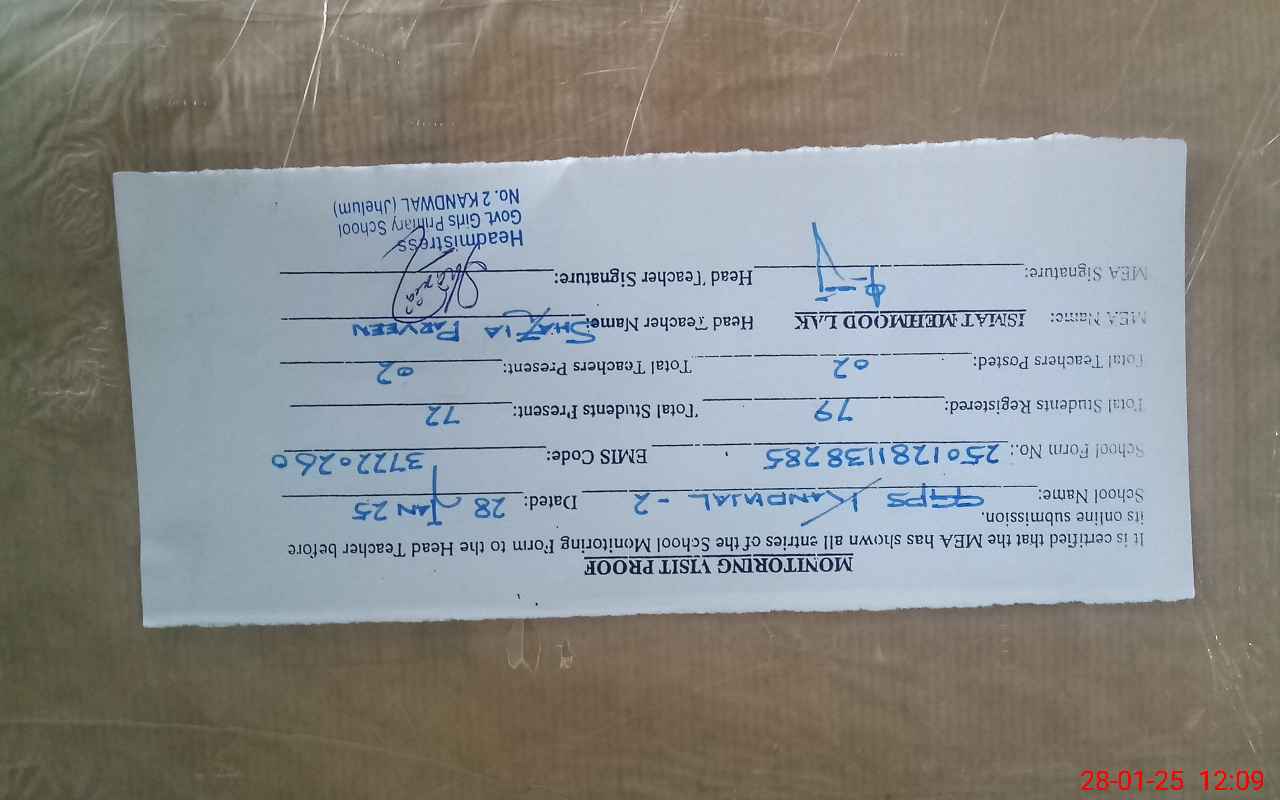 MONITORING VISIT PROOF
It is certified that the MEA has shown all entries of the School Monitoring Form to the Head Teacher before
its online submission.
School Name: GGPS KANDWAL - 2 Dated: 28 JAN 25
School Form No.: 2501281138285 EMIS Code: 37220260
Total Students Registered: 79 Total Students Present: 72
Total Teachers Posted: 02 Total Teachers Present: 02
MEA Name: ISMAT MEHMOOD LAK Head Teacher Name: SHAZIA PARVEEN
MEA Signature: Head Teacher Signature: Shazia
Headmistress
Govt. Girls Primary School
No. 2 KANDWAL (Jhelum)
28-01-25 12:09